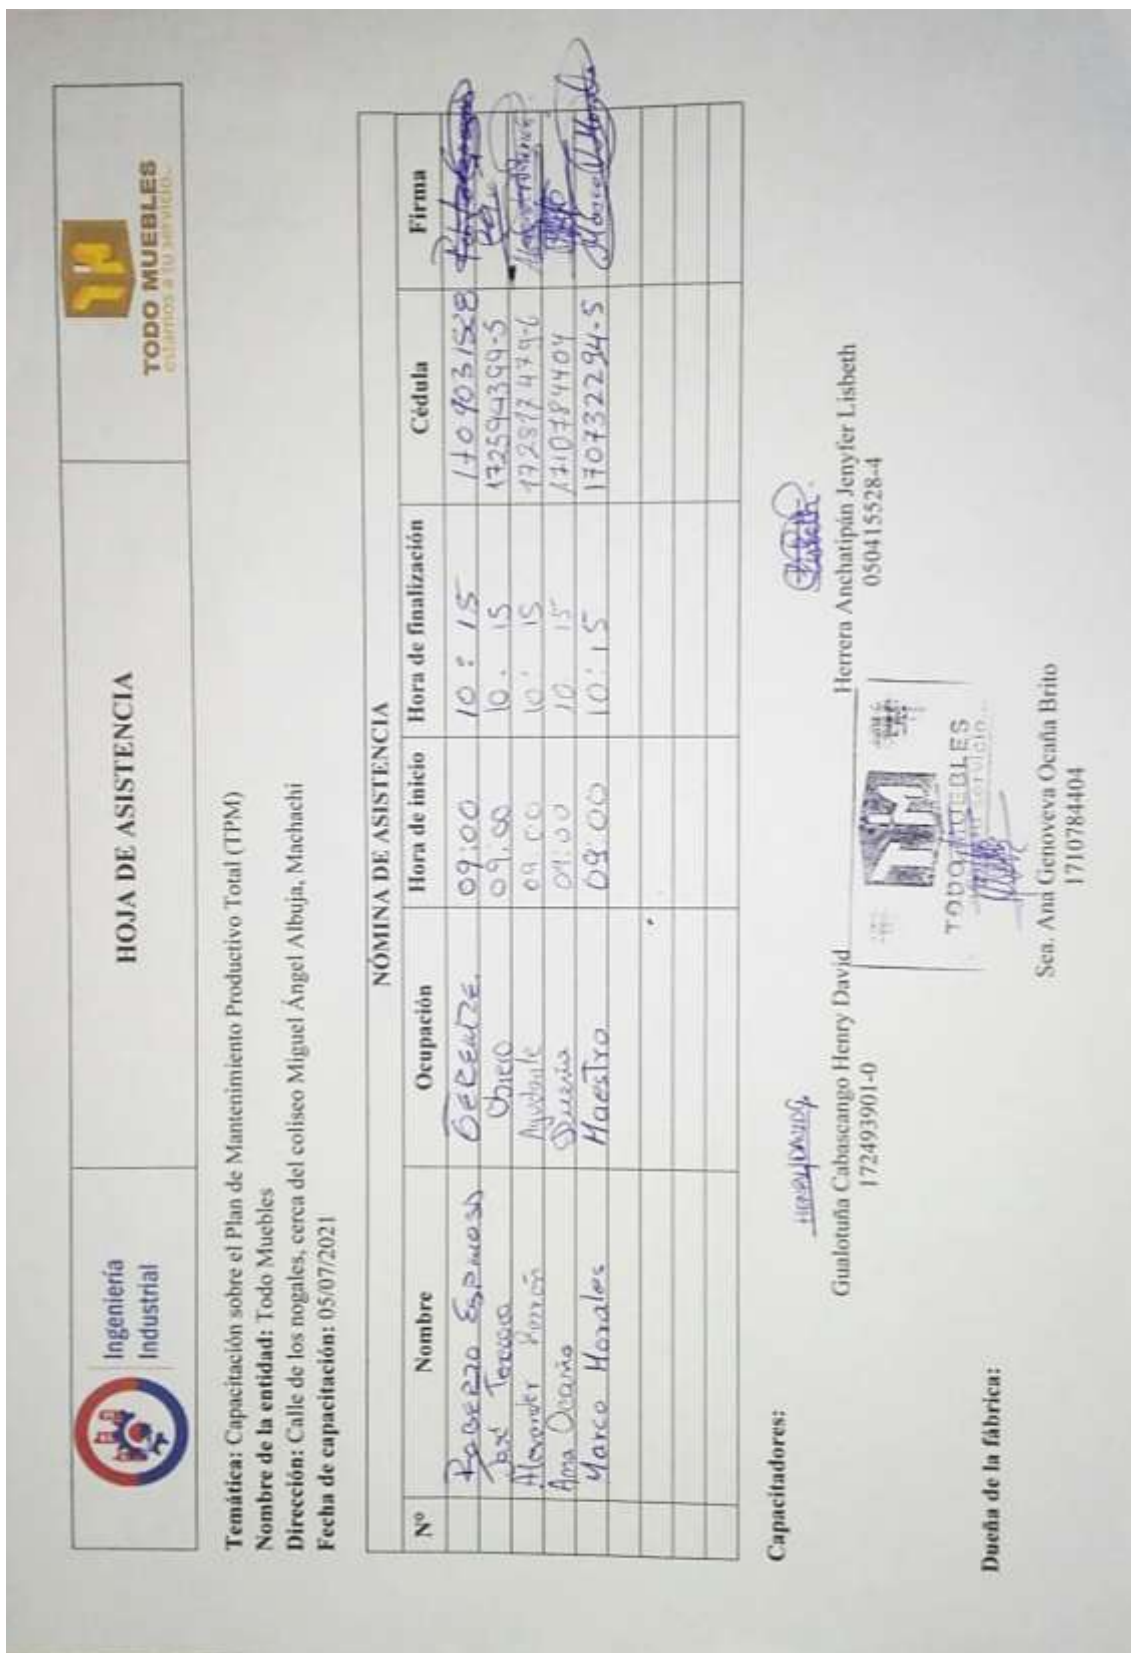 Ingeniería
Industrial
HOJA DE ASISTENCIA
TODO MUEBLES
estamos a tu servicio...
Temática: Capacitación sobre el Plan de Mantenimiento Productivo Total (TPM)
Nombre de la entidad: Todo Muebles
Dirección: Calle de los nogales, cerca del coliseo Miguel Ángel Albuja, Machachi
Fecha de capacitación: 05/07/2021
NÓMINA DE ASISTENCIA
Nº Nombre Ocupación Hora de inicio Hora de finalización Cédula Firma
Roberto Espinosa Gerente 09:00 10:15
Obrero 09:00 10:15 172594399-5
Alexander Ayudante 09:00 10:15 172817479-6
Ana Ocaña Dueña 09:00 10:15 1710784404
Marco Morales Maestro 09:00 10:15 170732294-5 Marco Morales
Capacitadores:
HENRY DAVID G. Lisbeth
Gualotuña Cabascango Henry David Herrera Anchatipán Jenyfer Lisbeth
172493901-0 050415528-4
TODO MUEBLES
servicio...
Dueña de la fábrica:
Sea. Ana Genoveva Ocaña Brito
1710784404